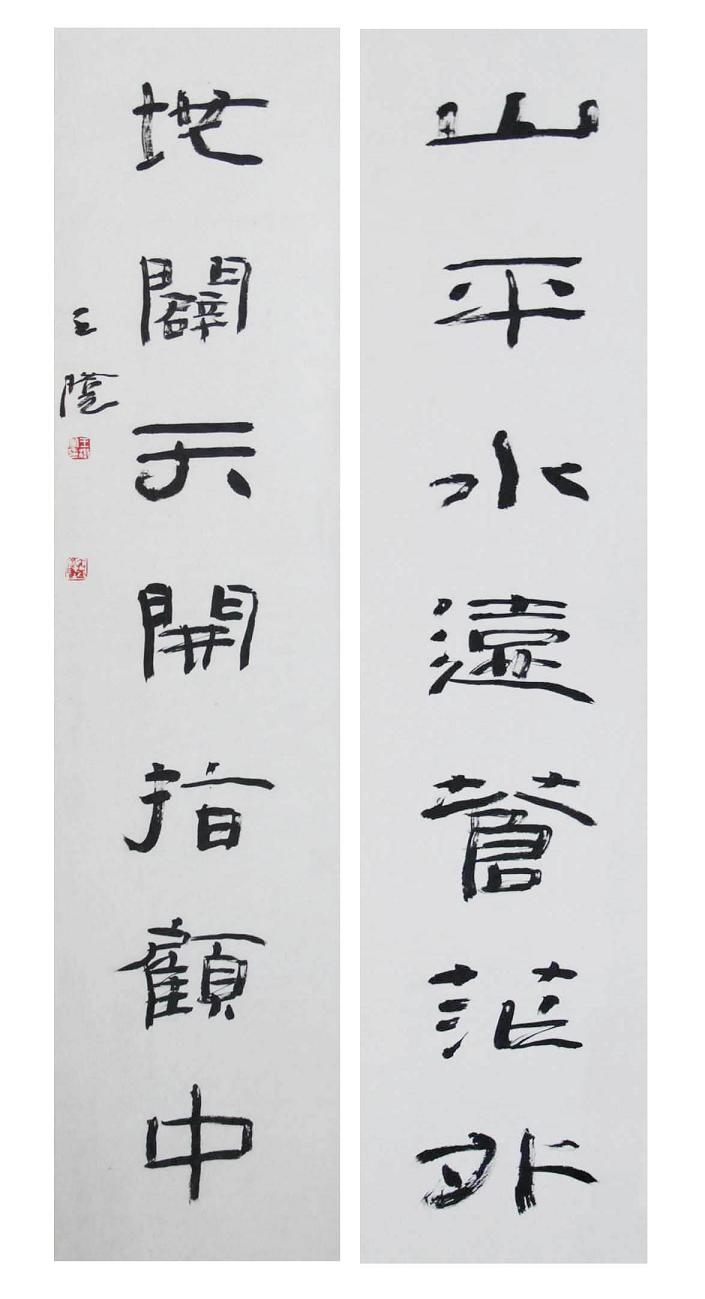 山平水遠蒼茫外
地闢天開指顧中
王蔭